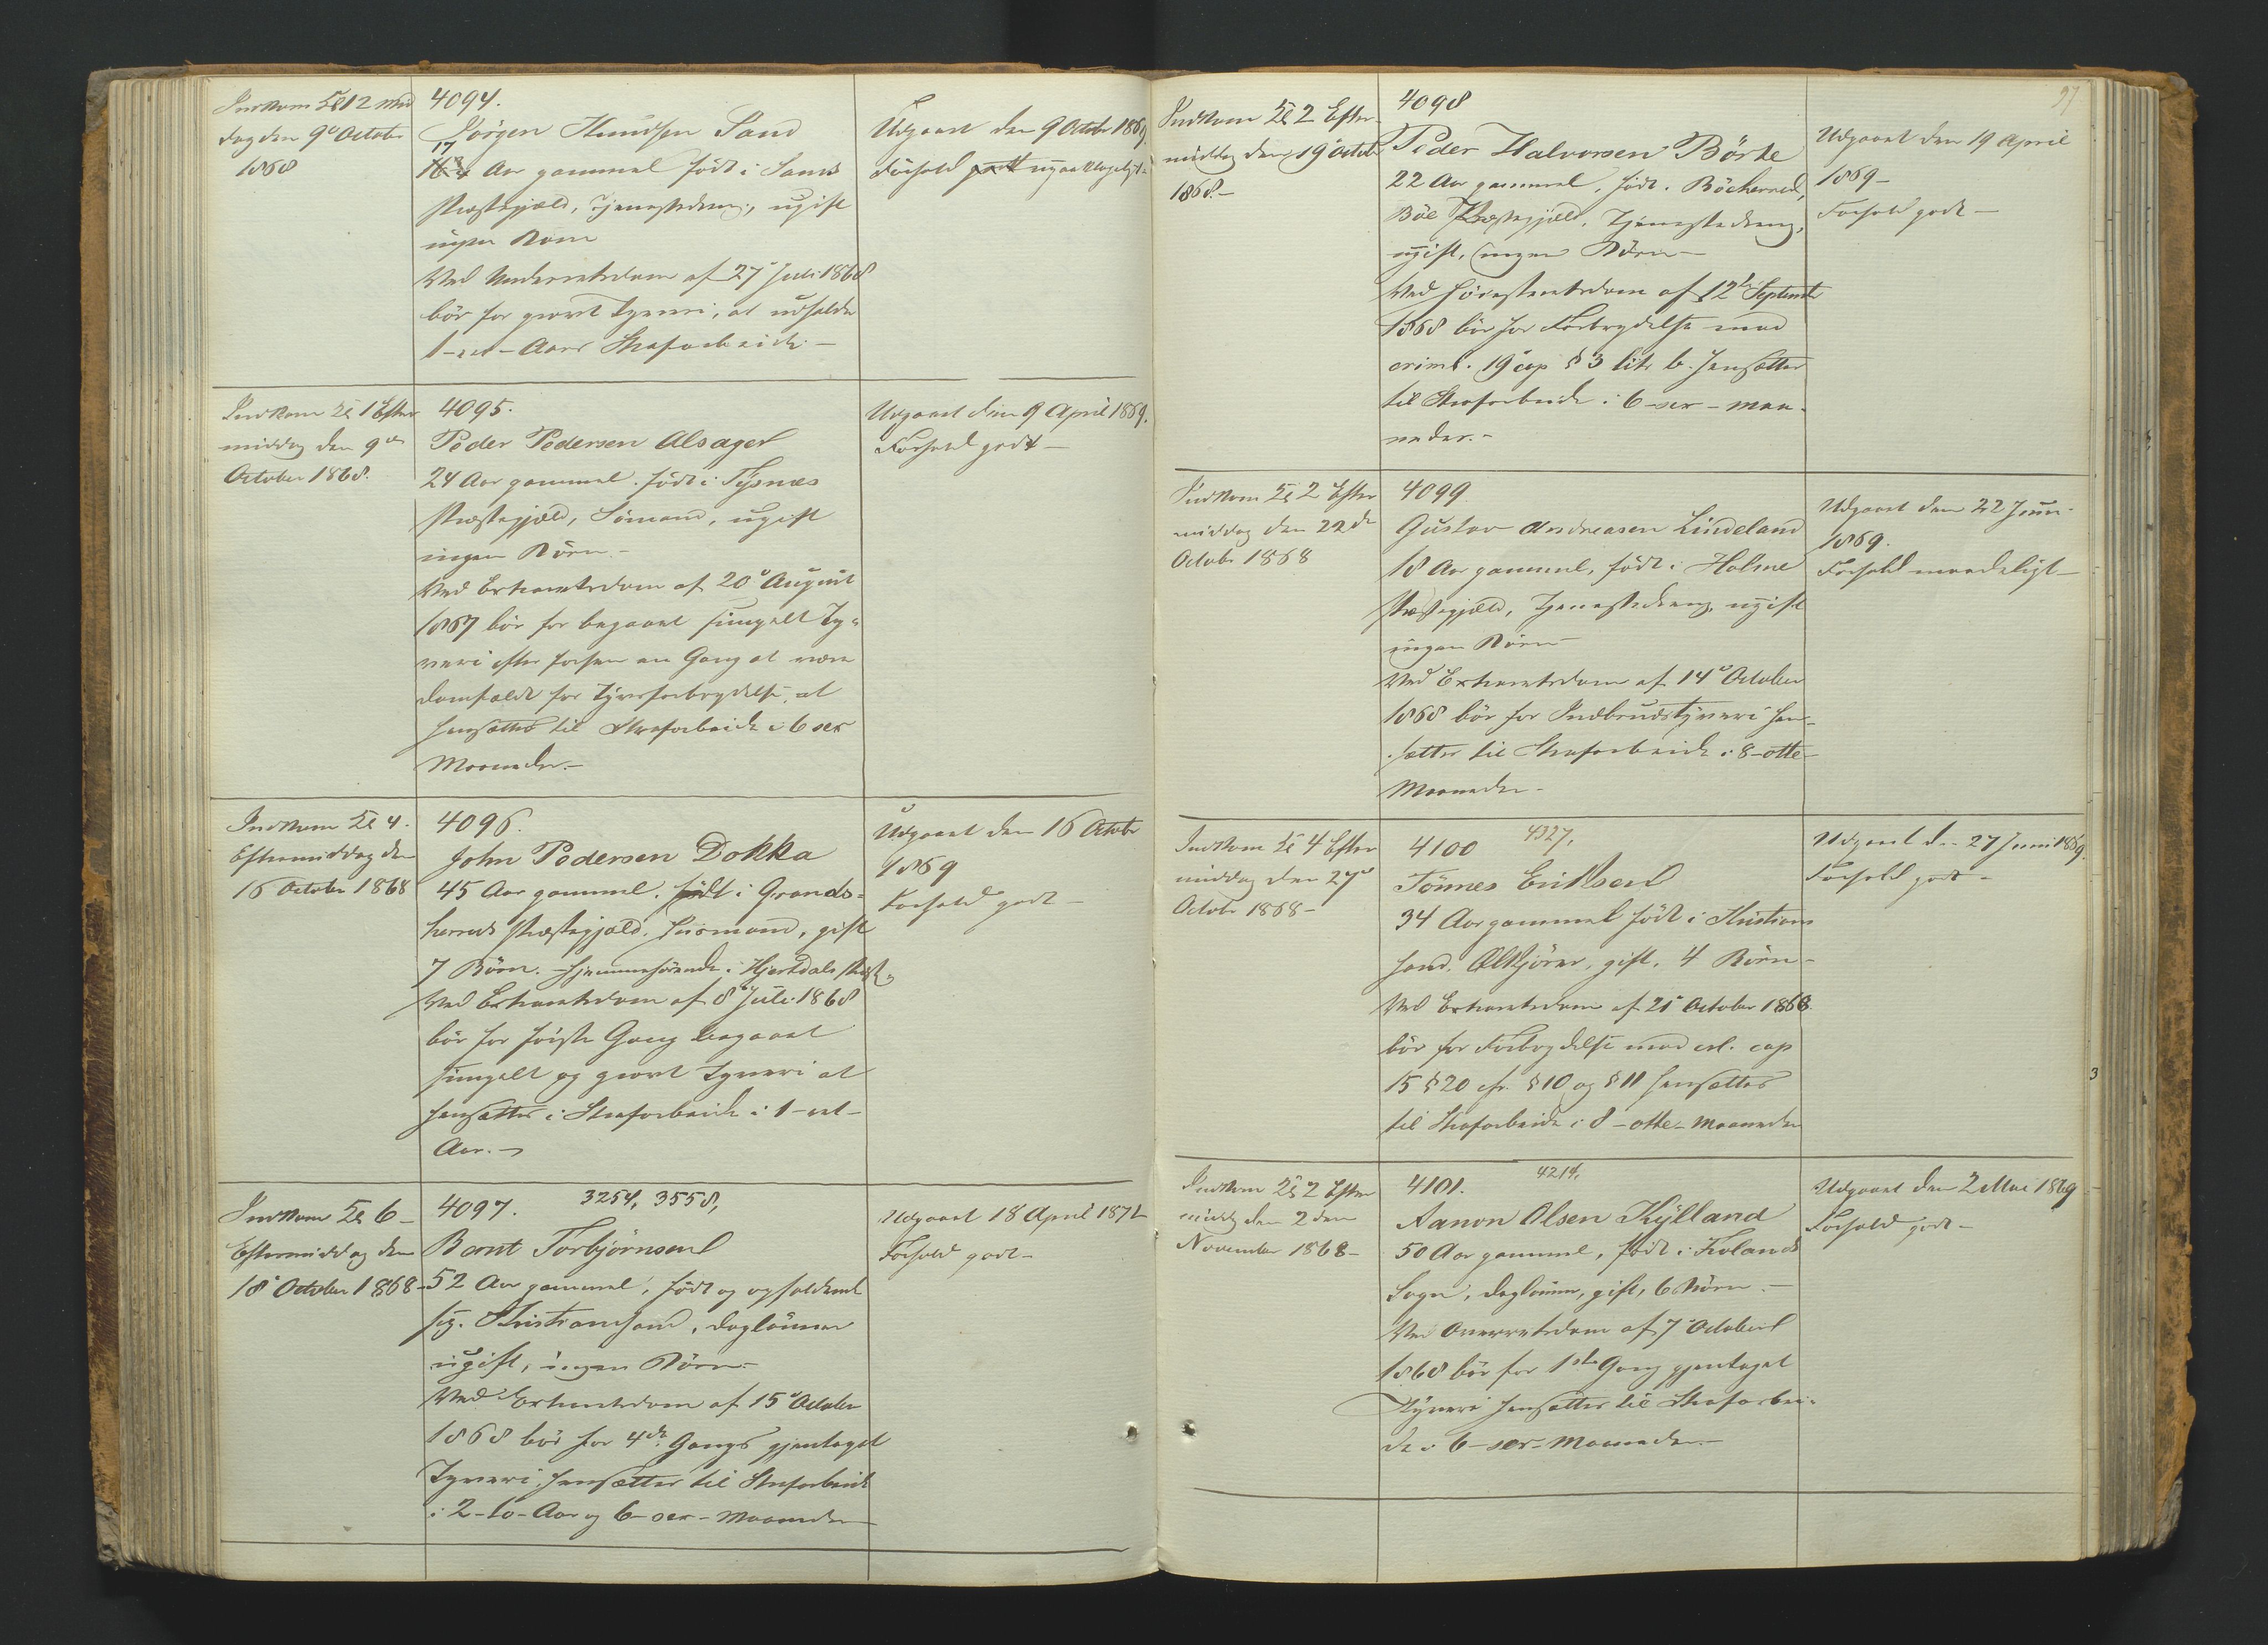 Indkom Kl 12 Mid
dag den 9de October
1868
4094.
Jörgen Knudsen Sand
17
Aar gammel født i Sands
Præstegjæld, Tjenestedreng, ugift
ingen Børn
Ved Underretsdom af 27de Juli 1868
bör for grovt Tyveri, at udholde
1-et-Aars Strafarbeide.-
Udgaaet den 9 Octobr 1869
Forhold godt upaaklageligt
Indkom Kl 1 Efter
middag den 9de
October 1868.
4095.
Peder Pedersen Alsager
24 Aar gammel. født i Tysnæs
Præstegjæld, Sömand, ugift
ingen Börn.-
Ved Extraretsdom af 20de August
1867 bör for begaaet simpelt Ty-
veri efter forhen en Gang at være
domfældt for Tyvsforbrydelse, at
hensættes til Strafarbeide i 6 sex
Maaneder.-
Udgaaet den 9 April 1869.
Forhold godt-
Indkom Kl 4.
Eftermiddag den
16 October 1868
4096.
John Pedersen Dokka
45 Aar gammel. født i Grands-
herreds Præstegjæld. Huusmand, gift
7 Börn. Hjemmehörende i Hjertdals Præst.
Ved Extraretsdom af 8de Juli 1868
bör for förste Gang begaaet
simpelt og grovt Tyveri at
hensættes i Strafarbeide i 1-eet-
Aar.-
Udgaaet den 16 Octobr
1869
Forhold godt-
Indkom Kl 6-
Eftermiddag den
18de October 1868-
4097. 3254, 3558,
Bernt Torbjörnsen
52 Aar gammel, födt og opholdende
sig i Kristiansand, Daglönner
ugift, ingen Börn.-
Ved Extraretsdom af 15de October
1868 bör for 4de Gangs gjentaget
Tyveri hensættes til Strafarbeide
i 2-to-Aar og 6-sex-Maaneder
Udgaaet 18 April 1871
Forhold godt-
97
Indkom Kl 2 Efter-
middag den 19de Octobr
1868.-
4098
Peder Halvorsen Börte
22 Aar gammel, födt i Böcherred,
Böe Præstegjæld, Tjenestedreng,
ugift, ingen Börn-
Ved Höiesteretsdom af 12te Septembr
1868 bör for Forbrydelse mod
criml. 19de cap § 3 litr b. hensættes
til Strafarbeide i 6-sex-maa-
neder.-
Udgaaet den 19 April
1869-
Forhold godt-
Indkom Kl 2 Efter
middag den 22de
Octobr 1868
4099.
Gustav Andreasen Lindeland
18 Aar gammel, födt i Holme
Præstegjæld, Tjenestedreng, ugift
ingen Börn-
Ved Extraretsdom af 14de October
1868 bör for Indbrudstyveri hen-
sættes til Strafarbeide i 8-otte-
Maaneder-
Udgaaet den 22 Juni
1869.
Forhold maadeligt-
Indkom Kl 4 Efter
middag den 27de
Octobr 1868-
4100 4327,
Tönnes Eriksen
34 Aar gammel födt i Kristians
sand. Ølkjörer, gift, 4 Börn-
Ved Extraretsdom af 21de October 1868.
bör for Forbrydelse mod crl. cap
15 § 20 cfr. § 10 og § 11 hensættes
til Strafarbeide i 8-otte-Maaneder
Udgaaet den 27 Juni 1869.
Forhold godt-
3
Indkom Kl 2 Efter
middag den 2den
November 1868-
4101. 4214,
Aanon Olsen Kylland
50 Aar gammel, födt i Froland
Sogn, Daglönner, gift, 6 Börn.-
Ved Overretsdom af 7de October
1868 bör for 1ste Gang gjentaget
Tyveri hensættes til Strafarbei-
de i 6-sex-Maaneder.-
Udgaaet den 2 Mai 1869
Forhold godt-